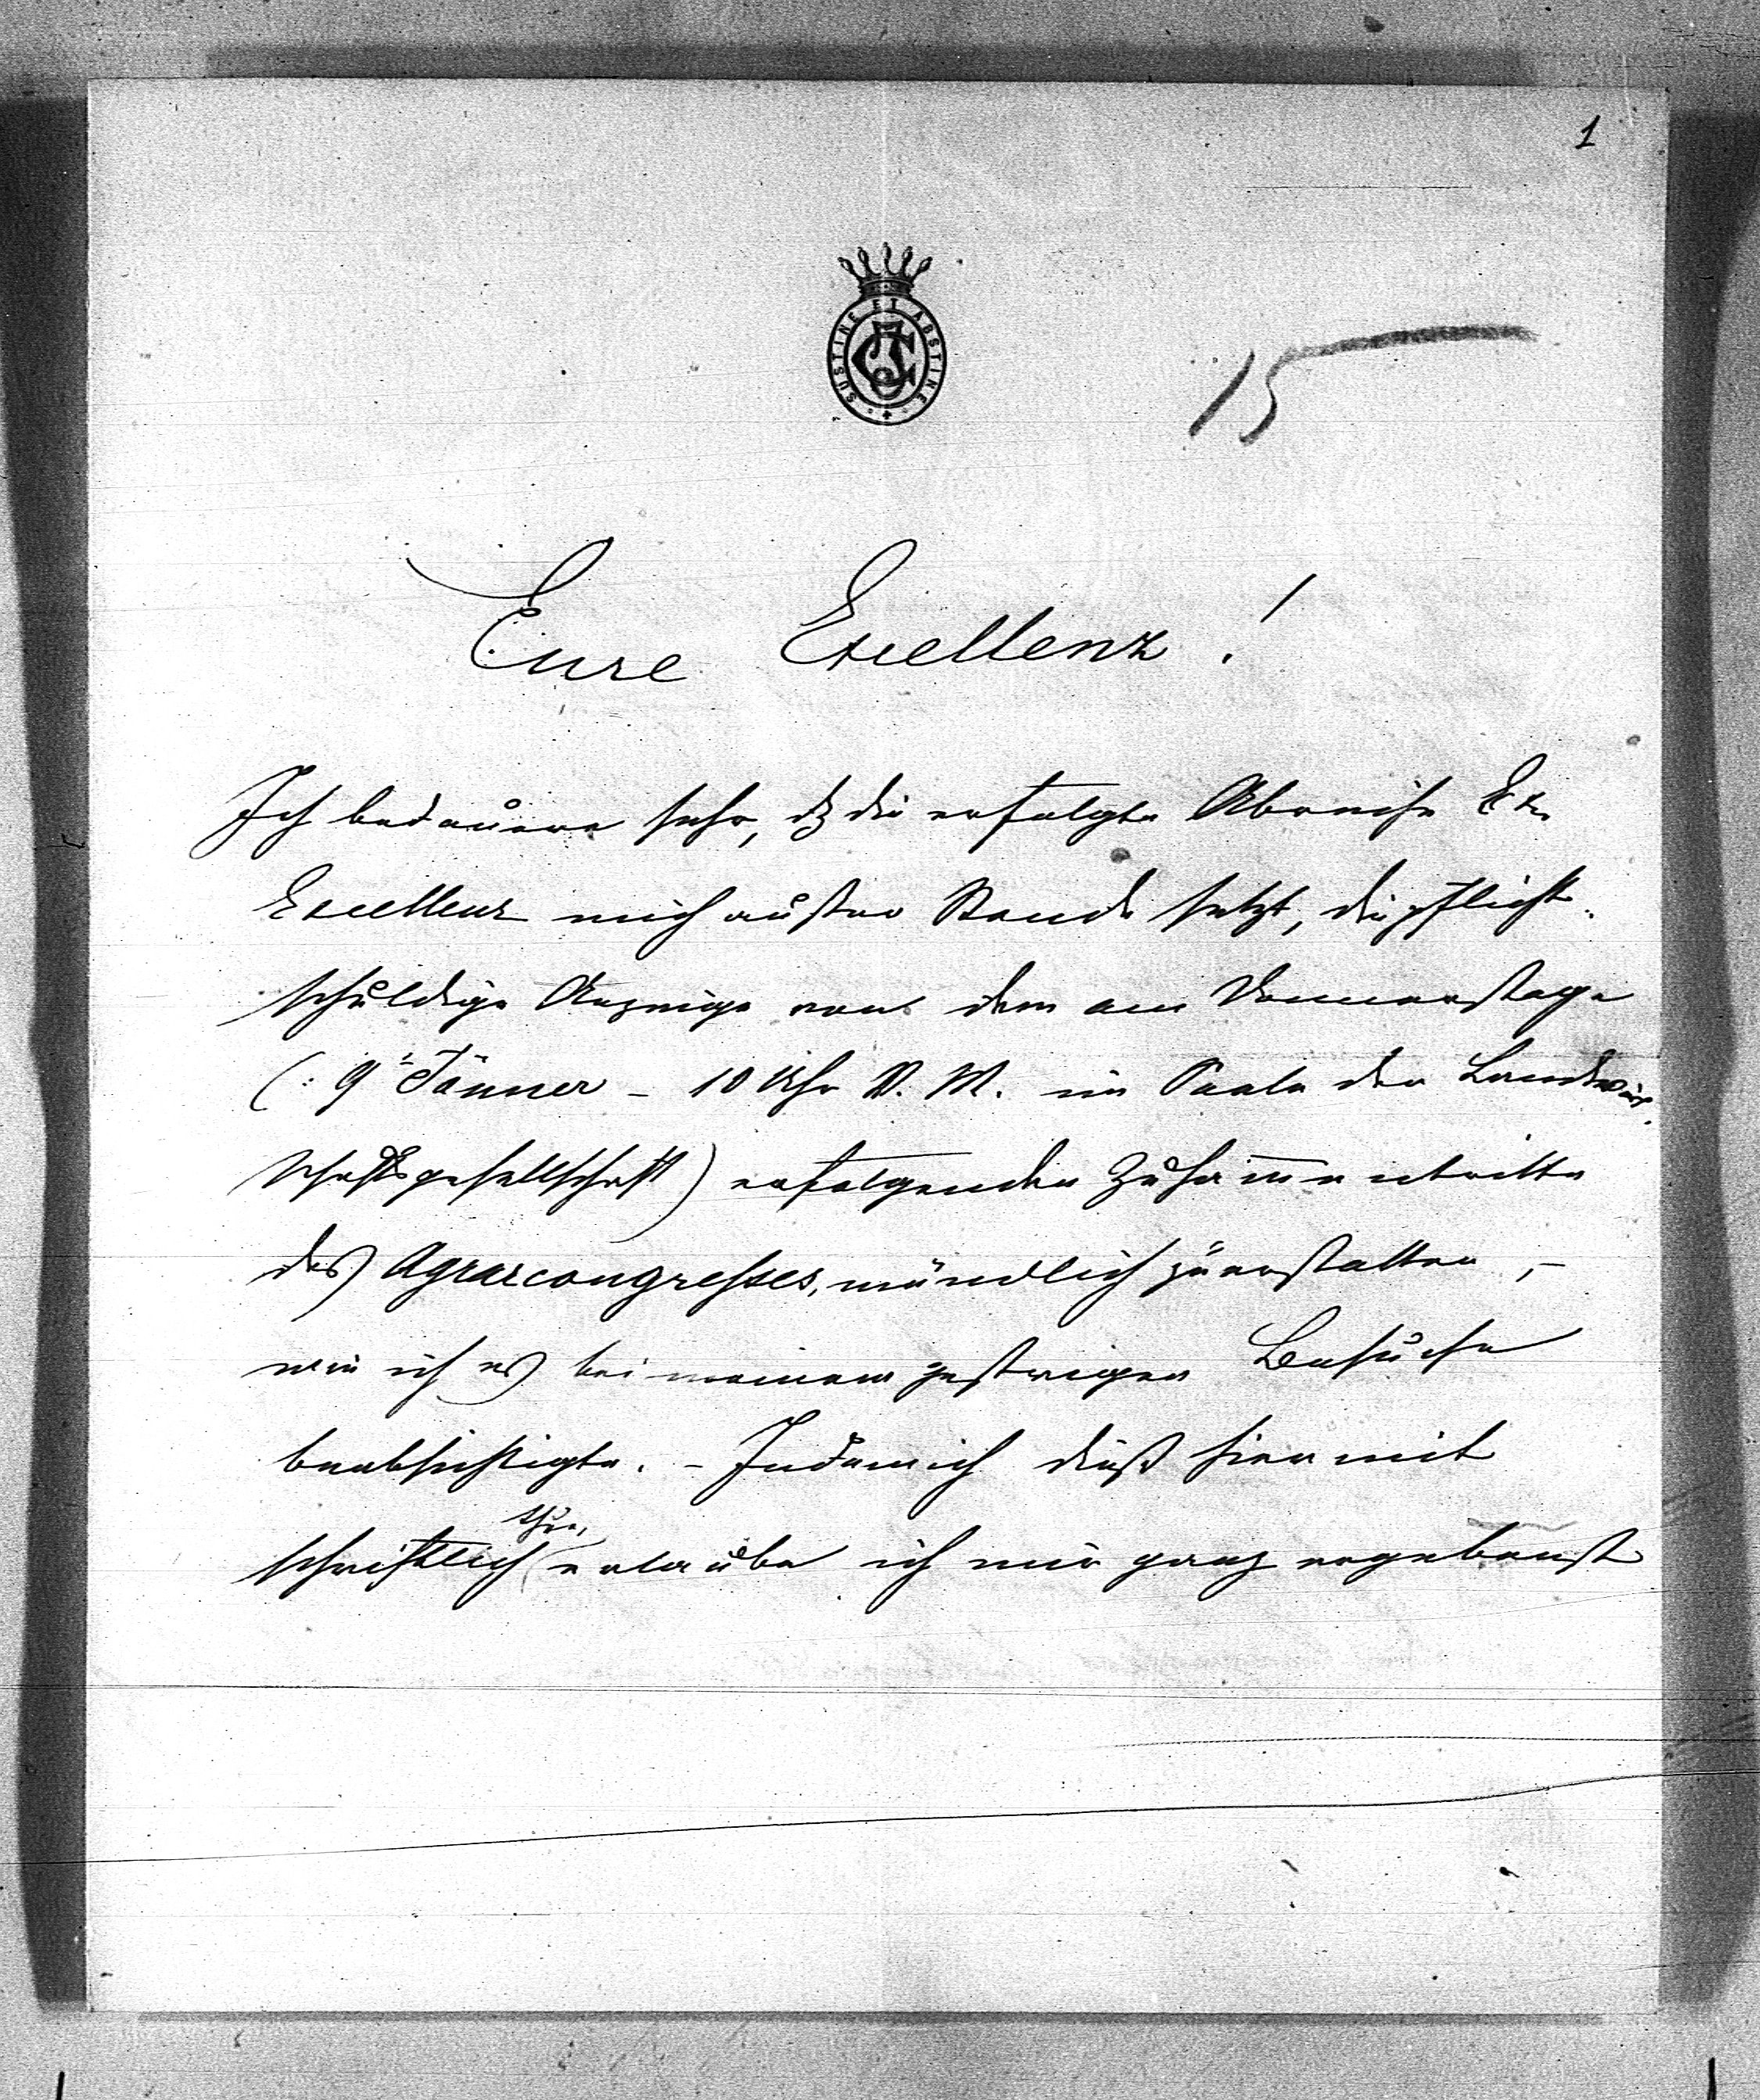 1
SUSTINE ET ABSTINE
15
Eure Excellenz!
Ich bedauere sehr, dß die erfolgte Abreise Er.
Excellenz mich außer Stande setzt, die pflicht-
schuldige Anzeige von dem am Donnerstage
(: 9t Jänner - 10 Uhr V. M. im Saale der Landwirt-
schaftsgesellschaft) erfolgenden Zusam̅entritte
des Agrarcongresses, mündlich zu erstatten, -
wie ich es bei meinem gestrigen Besuche
beabsichtigte. - Indem ich dieß hiermit
thue,
schriftlich erlaube ich mir ganz ergebenst